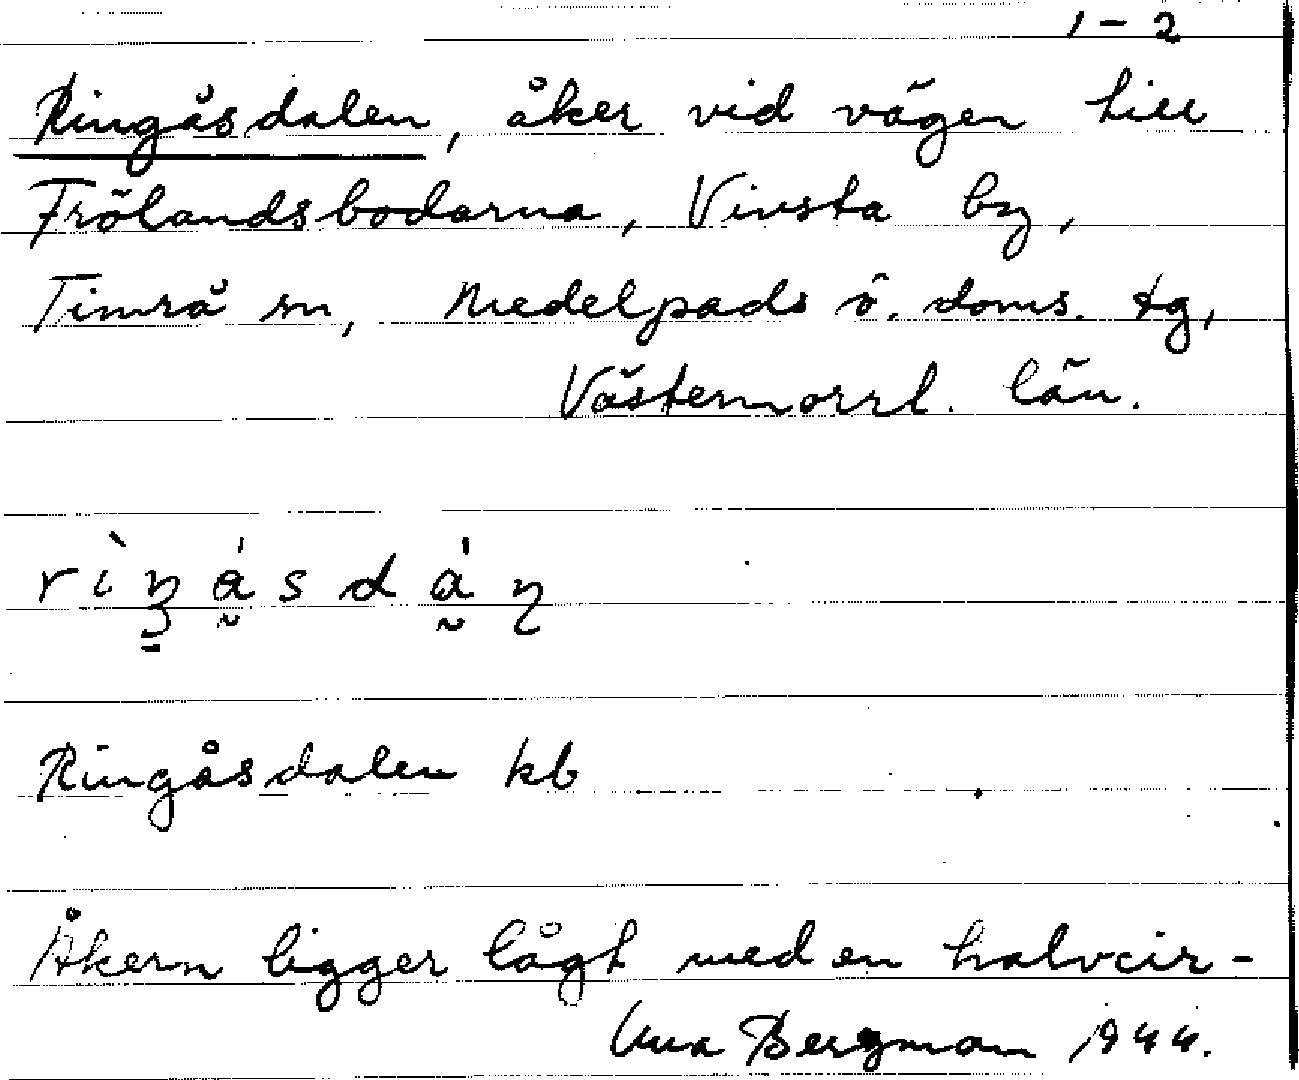 1-2
Ringåsdalen, åker vid vägen till
Frölandsbodarna, Vivsta by,
Timrå sn, Medelpads ö. doms. tg,
Västernorrl. län.
rìŋ̱ά̰sdά̰ɳ
Ringåsdalen kb
Åkern ligger lågt med en halvcir-
Bergman 1944.